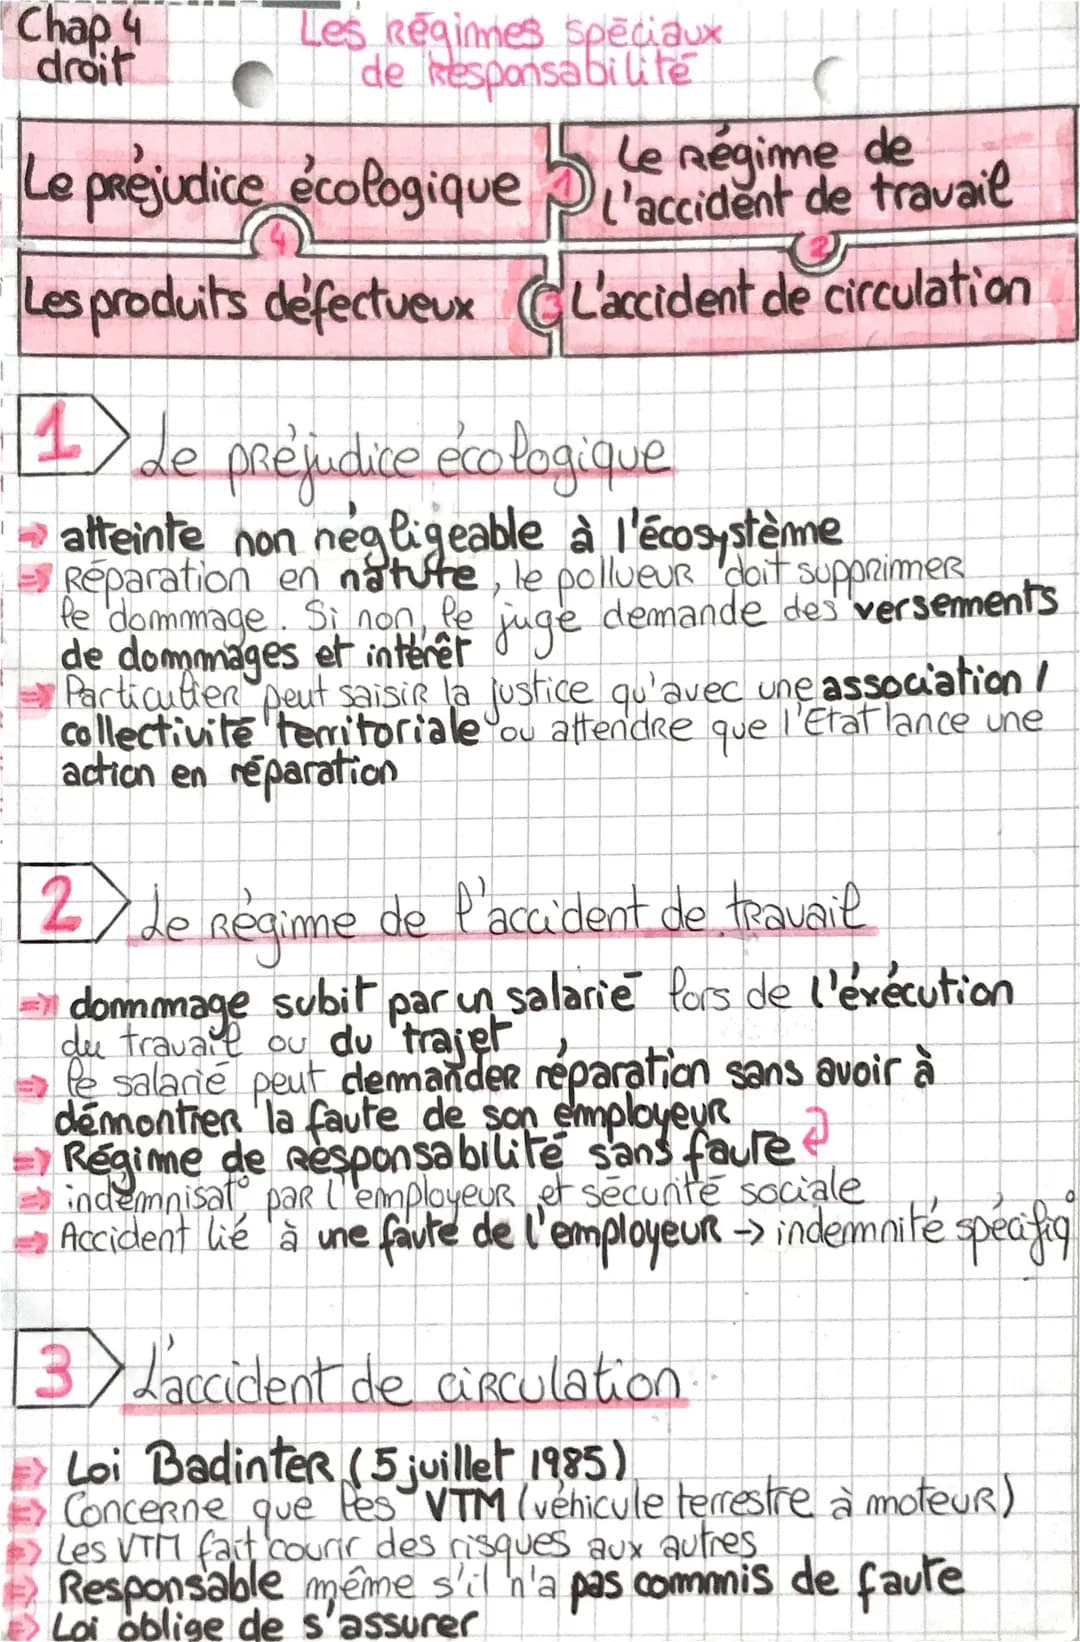 Chap 4
droit
Les Régimes spéciaux
de Responsabilité
Le préjudice écologique
1
Le Régime de
l'accident de travail
4
2
Les produits défectueux
3
L'accident de circulation
1 Le préjudice écologique
⇒ atteinte non négligeable à l'écosystème
⇒ Réparation en nature, le pollueur doit supprimer
le dommage. Si non, le juge demande des versements
de dommages et intérêt
⇒ Particulier peut saisir la justice qu'avec une association /
collectivité territoriale ou attendre que l'Etat lance une
action en réparation
2 Le Régime de l'accident de travail
⇒ dommage subit par un salarié lors de l'éxécution
du travail ou du trajet
⇒ le salarié peut demander réparation sans avoir à
démontrer la faute de son employeur
⇒ Régime de responsabilité sans faute
⇒ indemnisat° par l'employeur et sécurité sociale
⇒ Accident lié à une faute de l'employeur → indemnité spécifiq°
3 L'accident de circulation
⇒ Loi Badinter (5 juillet 1985)
⇒ Concerne que les VTM (véhicule terrestre à moteur)
⇒ Les VTM fait courir des risques aux autres
⇒ Responsable même s'il n'a pas commis de faute
⇒ Loi oblige de s'assurer